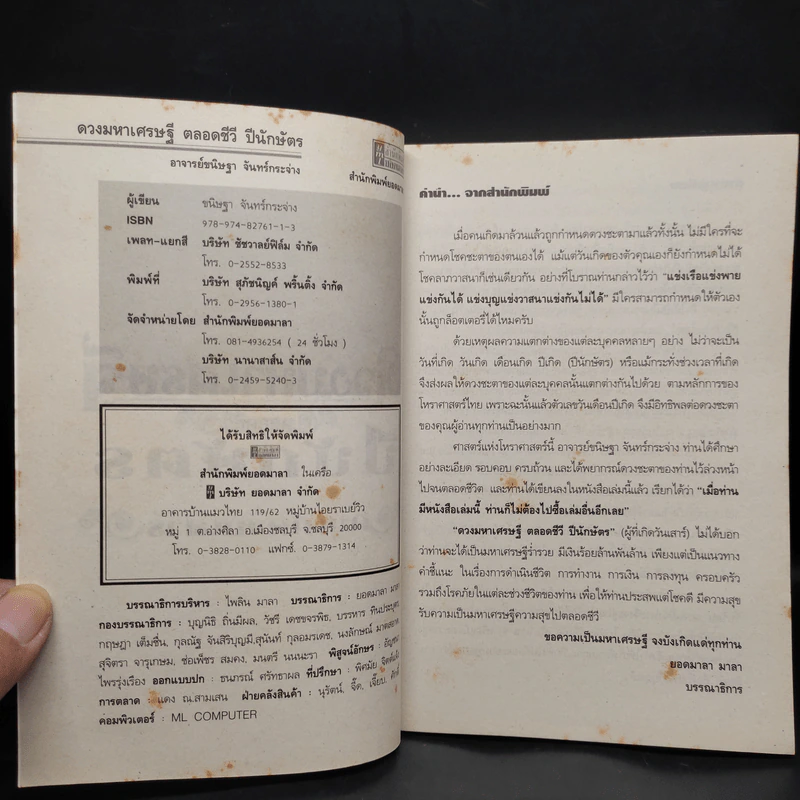 ดวงมหาเศรษฐี ตลอดชีวี ปีนักษัตร
อาจารย์ขนิษฐา จันทร์กระจ่าง
สำนักพิมพ์ยอดมาลา
ผู้เขียน ขนิษฐา จันทร์กระจ่าง
ISBN 978-974-82761-1-3
เพลท-แยกสี บริษัท ชัชวาลย์ฟิล์ม จำกัด
โทร. 0-2552-8533
พิมพ์ที่ บริษัท สุภัชนิญค์ พริ้นติ้ง จำกัด
โทร. 0-2956-1380-1
จัดจำหน่ายโดย สำนักพิมพ์ยอดมาลา
โทร. 081-4936254 ( 24 ชั่วโมง )
บริษัท นานาสาส์น จำกัด
โทร. 0-2459-5240-3
ได้รับสิทธิให้จัดพิมพ์
สำนักพิมพ์ยอดมาลา ในเครือ
บริษัท ยอดมาลา จำกัด
อาคารบ้านแมวไทย 119/62 หมู่บ้านไอยราเบย์วิว
หมู่ 1 ต.อ่างศิลา อ.เมืองชลบุรี จ.ชลบุรี 20000
โทร. 0-3828-0110 แฟกซ์. 0-3879-1314
บรรณาธิการบริหาร : ไพลิน มาลา บรรณาธิการ : ยอดมาลา มาลา
กองบรรณาธิการ : บุญนิธิ ถิ่นมีผล, วัชรี เดชขจรพิช, บรรหาร
กฤษฎา เต็มชื่น, กุลณัฐ จันสิริบุญมี, สุนันท์ กุลอมรเดช, นงลักษณ์
สุจิตรา จารุเกษม, ช่อเพ็ชร สมคง, มนตรี นนนะรา พิสูจน์อักษร :
ไพรรุ่งเรือง ออกแบบปก : ธนภรณ์ ศรัทธาผล ที่ปรึกษา : พิศมัย
การตลาด : แดง ณ.สามเสน ฝ่ายคลังสินค้า : นุรัตน์, จี๊ด, เจี๊ยบ,
คอมพิวเตอร์ : ML COMPUTER
คำนำ... จากสำนักพิมพ์
เมื่อคนเกิดมาล้วนแล้วถูกกำหนดดวงชะตามาแล้วทั้งนั้น ไม่มีใครที่จะ
กำหนดโชคชะตาของตนเองได้ แม้แต่วันเกิดของตัวคุณเองก็ยังกำหนดไม่ได้
โชคลาภวาสนาก็เช่นเดียวกัน อย่างที่โบราณท่านกล่าวไว้ว่า "แข่งเรือแข่งพาย
แข่งกันได้ แข่งบุญแข่งวาสนาแข่งกันไม่ได้" มีใครสามารถกำหนดให้ตัวเอง
นั้นถูกล็อตเตอรี่ได้ไหมครับ
ด้วยเหตุผลความแตกต่างของแต่ละบุคคลหลายๆ อย่าง ไม่ว่าจะเป็น
วันที่เกิด วันเกิด เดือนเกิด ปีเกิด (ปีนักษัตร) หรือแม้กระทั่งช่วงเวลาที่เกิด
จึงส่งผลให้ดวงชะตาของแต่ละบุคคลนั้นแตกต่างกันไปด้วย ตามหลักการของ
โหราศาสตร์ไทย เพราะฉะนั้นแล้วตัวเลขวันเดือนปีเกิด จึงมีอิทธิพลต่อดวงชะตา
ของคุณผู้อ่านทุกท่านเป็นอย่างมาก
ศาสตร์แห่งโหราศาสตร์นี้ อาจารย์ขนิษฐา จันทร์กระจ่าง ท่านได้ศึกษา
อย่างละเอียด รอบคอบ ครบถ้วน และได้พยากรณ์ดวงชะตาของท่านไว้ล่วงหน้า
ไปจนตลอดชีวิต และท่านได้เขียนลงในหนังสือเล่มนี้แล้ว เรียกได้ว่า "เมื่อท่าน
มีหนังสือเล่มนี้ ท่านก็ไม่ต้องไปซื้อเล่มอื่นอีกเลย"
"ดวงมหาเศรษฐี ตลอดชีวี ปีนักษัตร" (ผู้ที่เกิดวันเสาร์) ไม่ได้บอก
ว่าท่านจะได้เป็นมหาเศรษฐีร่ำรวย มีเงินร้อยล้านพันล้าน เพียงแต่เป็นแนวทาง
คำชี้แนะ ในเรื่องการดำเนินชีวิต การทำงาน การเงิน การลงทุน ครอบครัว
รวมถึงโรคภัยในแต่ละช่วงชีวิตของท่าน เพื่อให้ท่านประสพแต่โชคดี มีความสุข
รับความเป็นมหาเศรษฐีความสุขไปตลอดชีวี
ขอความเป็นมหาเศรษฐี จงบังเกิดแด่ทุกท่าน
ยอดมาลา มาลา
บรรณาธิการ